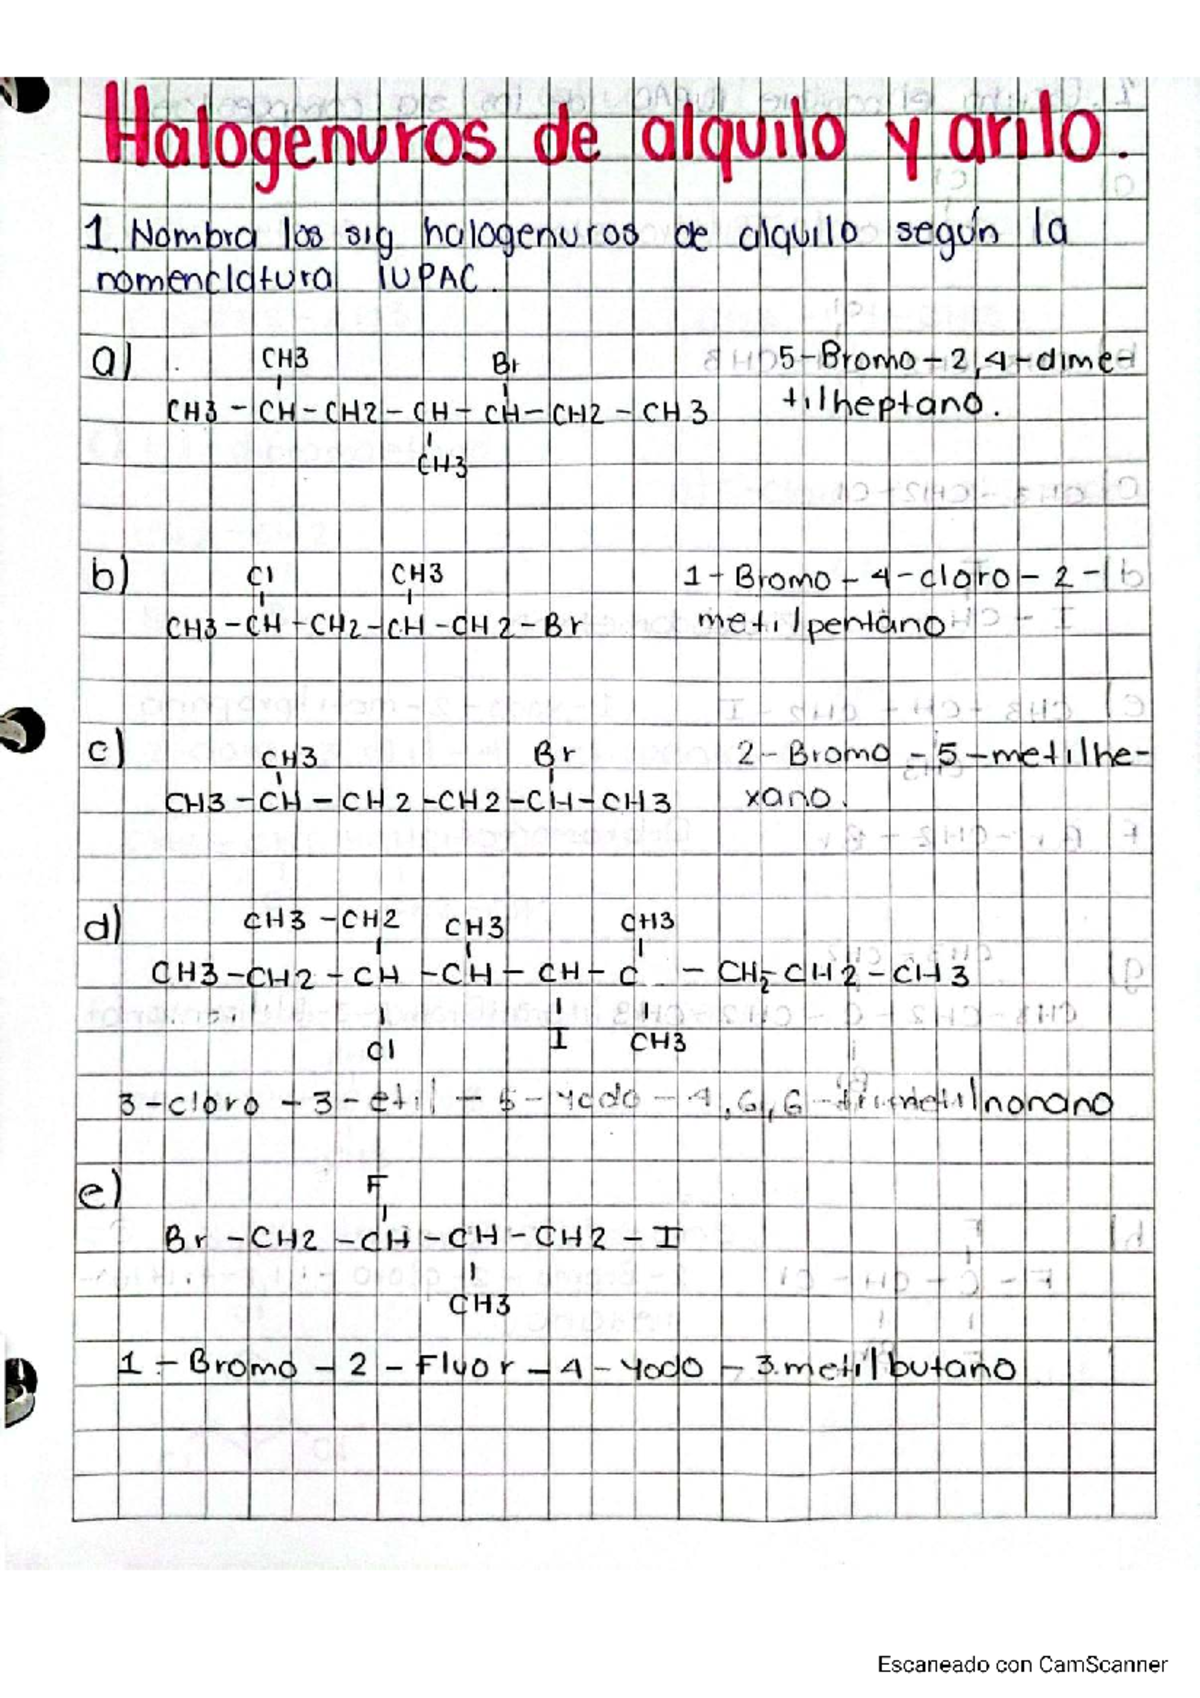 Halogenuros de alquilo y arilo.
1. Nombra los sig halogenuros de alquilo según la
nomenclatura IUPAC.
a) CH3 Br 5-Bromo-2,4-dime-
CH3 - CH - CH2 - CH - CH - CH2 - CH3 tilheptano.
CH3
b) Cl CH3 1-Bromo-4-cloro-2-
CH3 - CH - CH2 - CH - CH2 - Br metilpentano
c) CH3 Br 2-Bromo-5-metilhe-
CH3 - CH - CH2 - CH2 - CH - CH3 xano.
d) CH3 - CH2 CH3 CH3
CH3 - CH2 - CH - CH - CH - C - CH2 CH2 - CH3
Cl I CH3
3-cloro-3-etil-5-yodo-4,6,6-trimetilnonano
e) F
Br - CH2 - CH - CH - CH2 - I
CH3
1-Bromo-2-Fluor-4-yodo-3.metilbutano
Escaneado con CamScanner